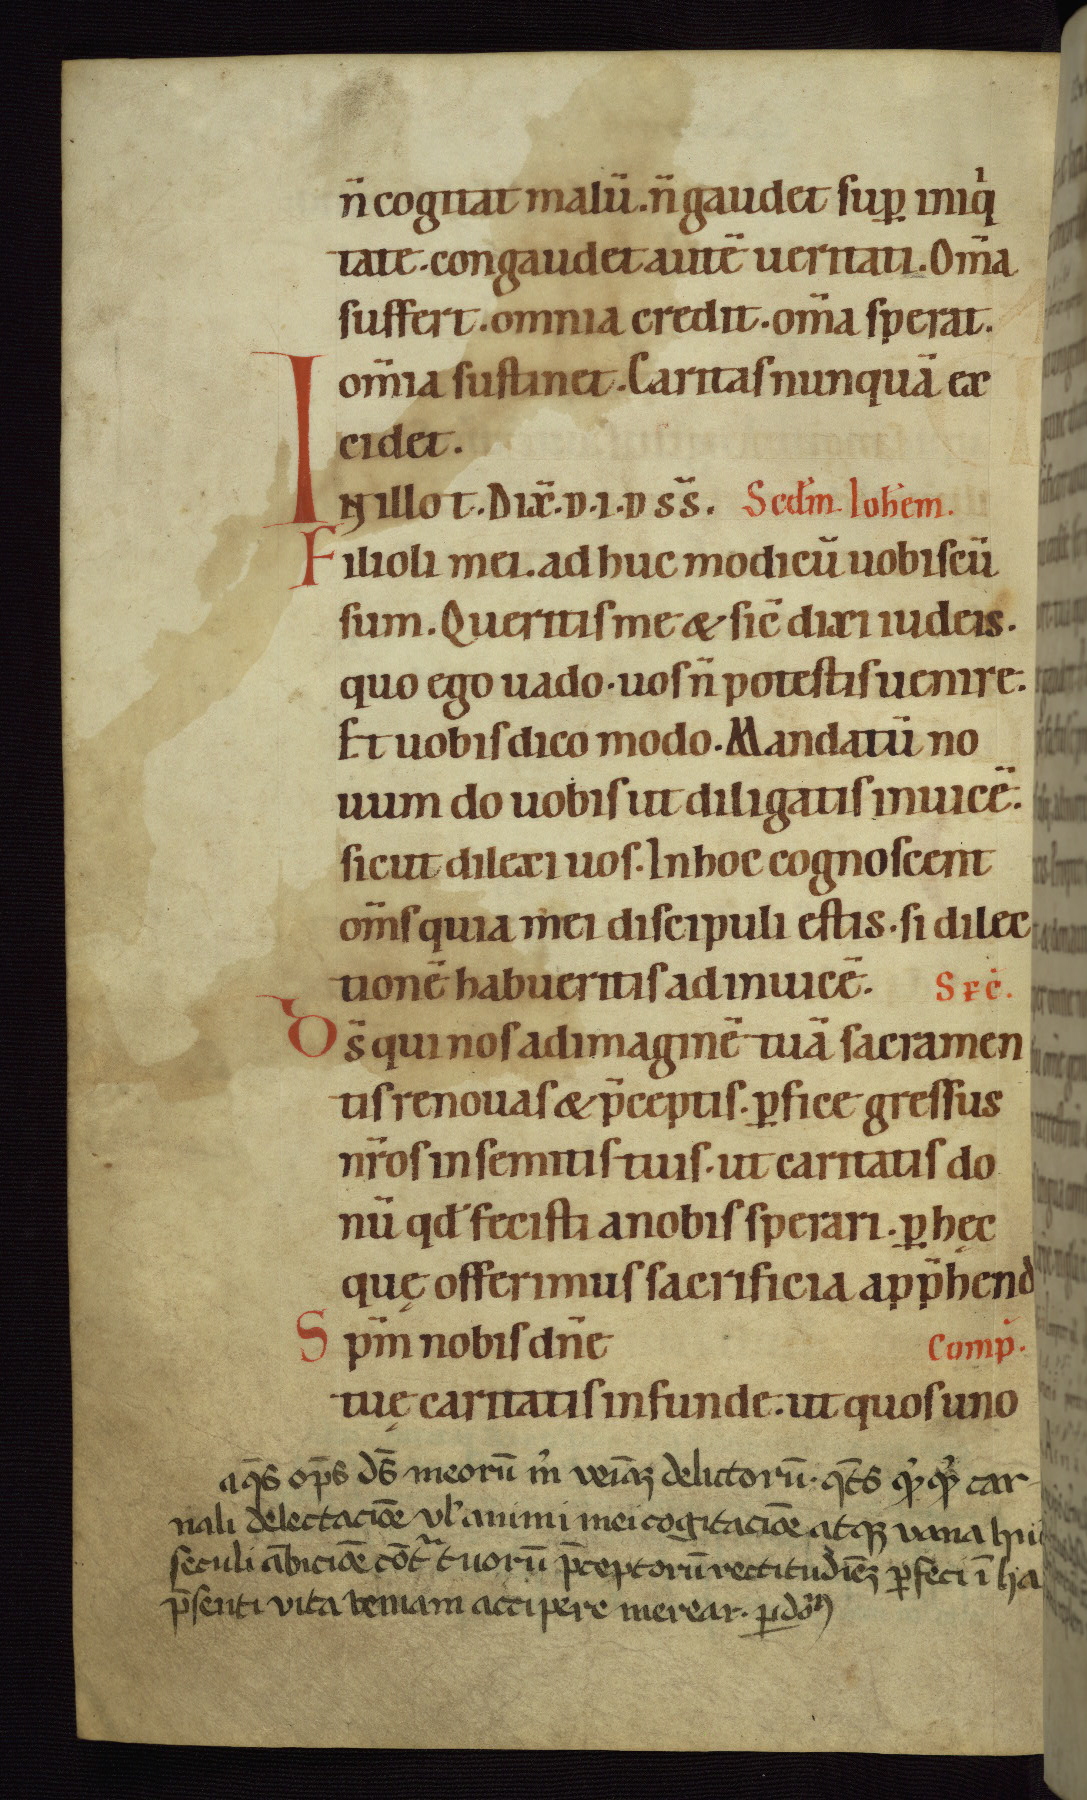 n̄ cogitat malū. n̄ gaudet sup̱ iniqͥ
tate. congaudet autē ueritati. Om̄a
suffert. omnia credit. om̄a sperat.
om̄ia sustinet. Caritas nunquā ex
cidet.
IN illo t. Dix̄. D. I. D s̄s. Scd̄m Ioh̄em.
Filioli mei. ad huc modicū uobiscū
sum. Queritis me & sic̄ dixi iudeis.
quo ego uado. uos n̄ potestis uenire.
Et uobis dico modo. Mandatū no
uum do uobis ut diligatis inuicē.
sicut dilexi uos. In hoc cognoscent
om̄s quia mei discipuli estis. si dilec
tionē habueritis ad inuicē. Sec̄.
Ds̄ qui nos ad imaginē tuā sacramen
tis renouas & p̄ceptis. ꝑfice gressus
nr̄os in semitis tuis. ut caritatis do
nū qd̄ fecisti a nobis sperari. ꝑ hęc
quę offerimus sacrificia app̄hend
Spm̄ nobis dn̄e Comp̄.
tuę caritatis infunde. ut quos uno
aq̄s op̄s ds̄ meorū m̄ veiaꝫ delictorū. qͣs car-
nali delectacioē vl̓ animi mei cogitacioē atqꝫ vana hui
seculi ābicioē cōtͣ tuorū p̄ceptorū rectitudiēꝫ ꝑfeci ī ha
p̄senti vita veniam accipere merear. ꝑ do